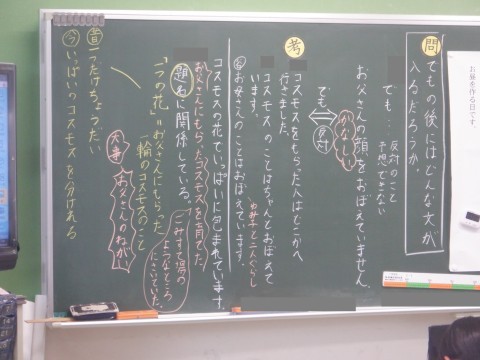 お昼を作る日です。
問
でもの後にはどんな文が
入るだろうか。
でも‥
反対のこと
予想できない
お父さんの顔をおぼえていません。
かなしい
でも、
反対
考
コスモスをもらった人はどこかへ
行きました。
コスモスのことはちゃんとおぼえて
います。
ゆみ子と二人ぐらし
お母さんのことはおぼえています。
コスモスの花でいっぱいに包まれています。
お父さんにもらったコスモスを育てた。
題名に関係している。
ごみすて場の
ようなところ
にさいていた。
「一つの花」=お父さんにもらった
一輪のコスモスのこと
大事
お父さんのねがい
昔 一つだけちょうだい
今 いっぱいのコスモスを分けれる